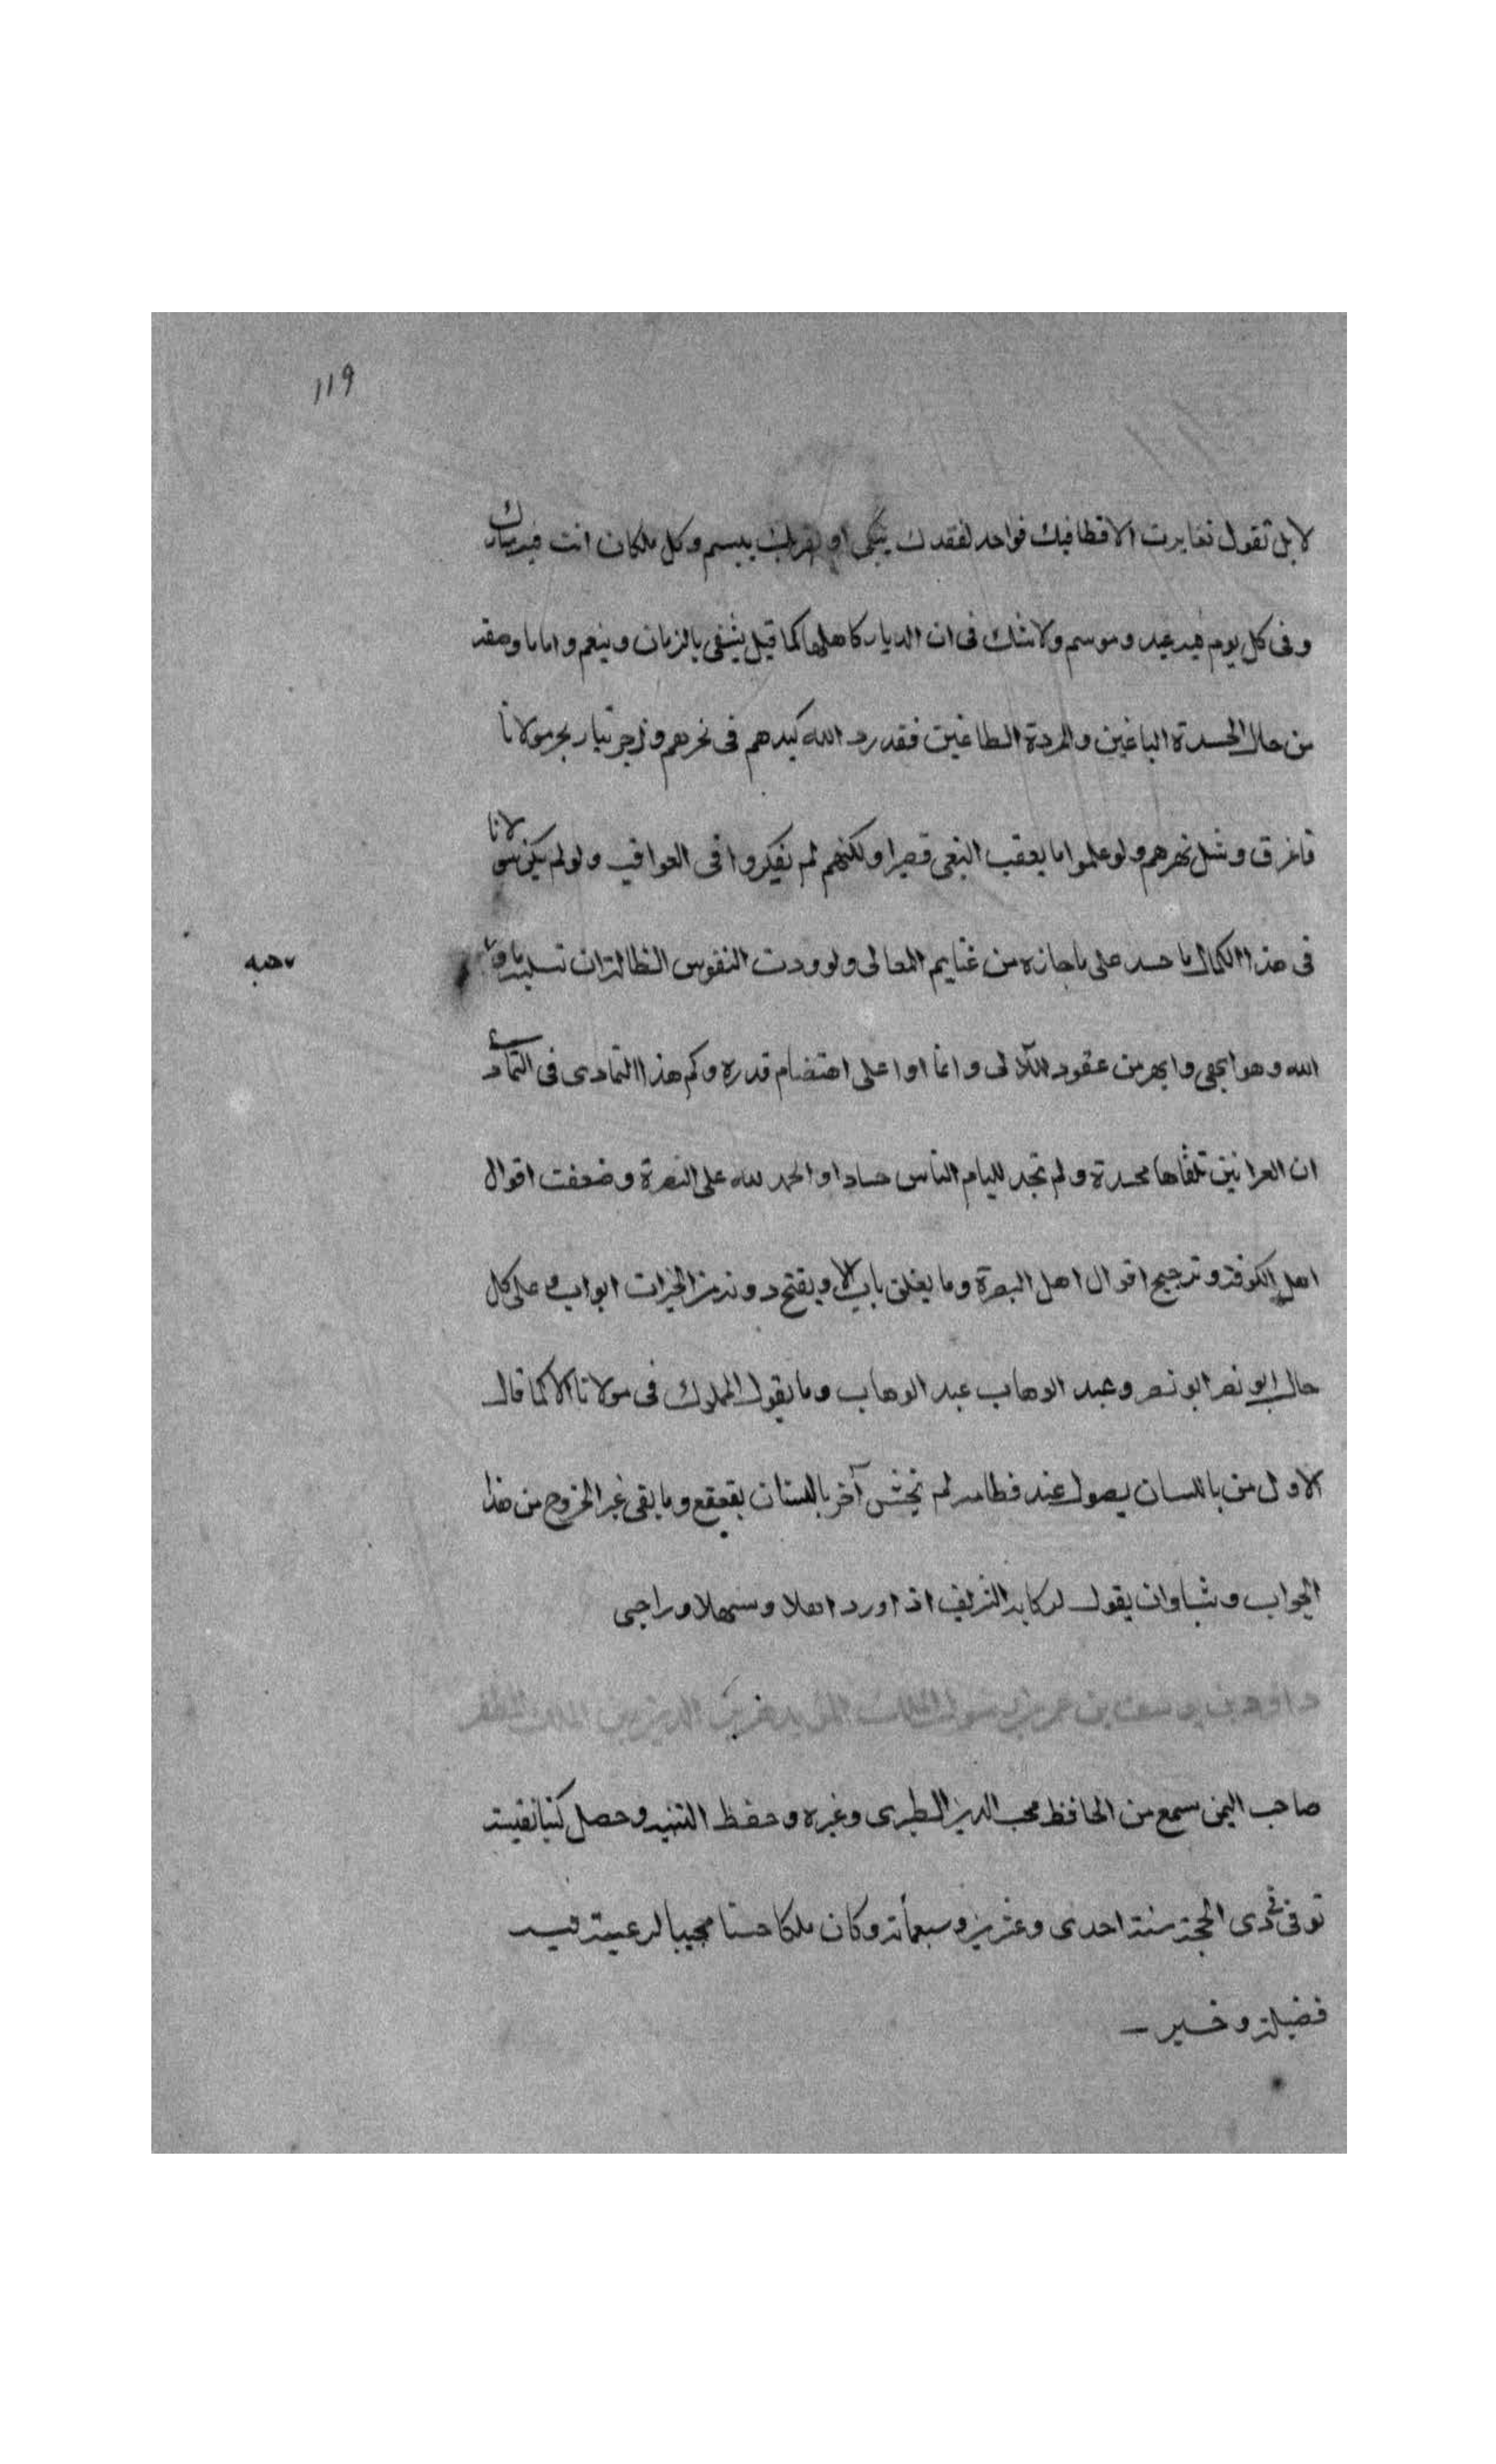 119
لا بل تقول تغايرت الاقطا فيك فواحد لفقدك يبكى او لقربك يبسم وكل مكان انت فيه مبارك
وفى كل يوم فيه عيد وموسم ولا شك فى ان الديار كاهلها كما قيل يشقى بالزمان وينعم واما ما وصفه
من حال الحسدة الباغين والمردة الطاغين فقد رد الله كيدهم فى نحرهم وزجر تيار بحر مولانا
فاغرق وشل نهرهم ولو علموا ما يعقب البغى قصرا ولكنهم لم يفكروا فى العواقب ولو لم يكن مولانا
فى هذا الكمال ما حسد على ما حازه من غنايم المعالى ولو ودت النفوس الظالمة ان تسلبه ما وهبه
وهبه
الله وهو ابهى وابهر من عقود اللآلى واغاوا على اهتضام قدره وكم هذا التمادى فى التمادى
ان العرانين تلقاها محسدة ولم تجد لليام الناس حسادا والحمد لله على النصرة وضعفت اقوال
اهل الكوفة وترجيح اقوال اهل البصرة وما يغلق باب الا ويفتح دونه من الخيرات ابواب وعلى كل
حال ابو نصر ابو نصر وعبد الوهاب عبد الوهاب وما يقول المملوك فى مولانا الا كما قال
الاول من باللسان يصول عند فطامه لم يخش آخر بالشنان يقعقع وما بقى غير الخروج من هذا
الجواب وشاوان يقول لركابه الشريف اذا ورد اهلا وسهلا وراجى
داود بن يوسف بن عمر بن رسول الملك المؤيد هزبر الدين بن الملك المظفر
صاحب اليمن سمع من الحافظ محب الدين الطبرى وغيره وحفظ التنبيه وحصل كتبا نفيسة
توفى فى ذى الحجة سنة احدى وعشرين وسبعمأة وكان ملكا حسنا محببا لرعيته فيه
فضيلة وخير